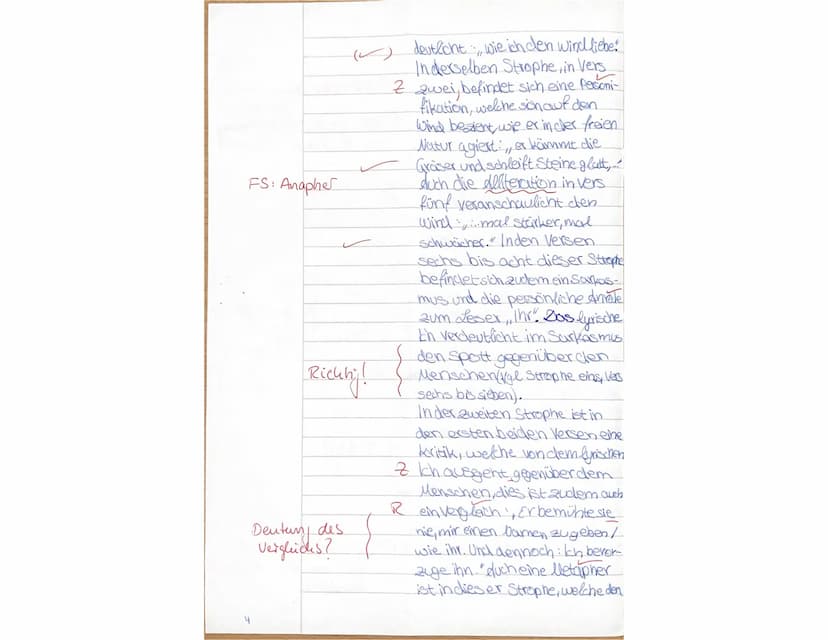 (✓) deutlicht: „wie ich den Wind liebe."
In derselben Strophe, in Vers
Z zwei, befindet sich eine Personi-
fikation, welche sich auf den
Wind bezieht, wie er in der freien
Natur agiert: „er kämmt die
Gräser und schleift Steine glatt,..."
FS: Anapher duch die Alliteration in Vers
fünf veranschaulicht den
Wind: „...mal stärker, mal
schwächer." In den Versen
sechs bis acht dieser Strophe
befindet sich zudem ein Sarkas-
mus und die persönliche Anrede
zum Leser „Ihr". Das lyrische
Ich verdeutlicht im Sarkasmus
den Spott gegenüber den
Richtig! Menschen (vgl. Strophe eins, Vers
sechs bis sieben).
In der zweiten Strophe ist in
den ersten beiden Versen eine
Kritik, welche von dem lyrischen
Z Ich ausgeht, gegenüber dem
Menschen, dies ist zudem auch
R ein Vergleich: „Er bemühte sie
Deutung des nie, mir einen Namen zu geben/
Vergleichs? wie ihr. Und dennoch: Ich bevor-
zuge ihn." duch eine Metapher
ist in dieser Strophe, welche den
4